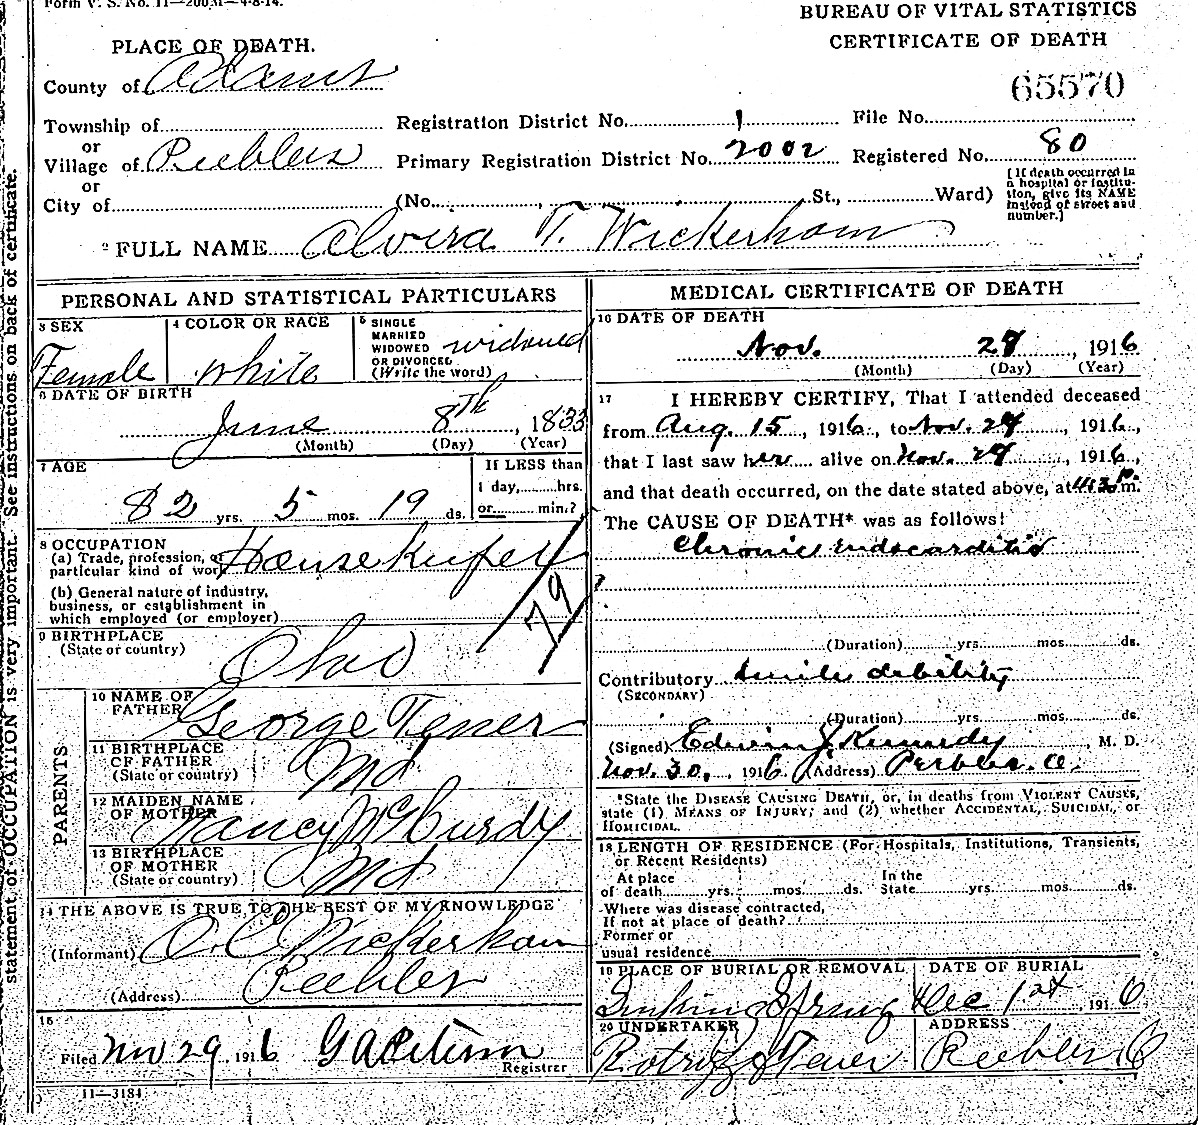 Form V. S. No. 11—200M—4-8-14.
BUREAU OF VITAL STATISTICS
CERTIFICATE OF DEATH
65570
PLACE OF DEATH.
County of Adams
Township of
or
Village of Peebles
or
City of
Registration District No. 1
File No.
Primary Registration District No. 2002
Registered No. 80
(No. , St., Ward)
[If death occurred in
a hospital or institu-
tion, give its NAME
instead of street and
number.]
2 FULL NAME Alvira T. Wickerham
statement of OCCUPATION is very important. See instructions on back of certificate.
PERSONAL AND STATISTICAL PARTICULARS
3 SEX
Female
4 COLOR OR RACE
white
5 SINGLE
MARRIED
WIDOWED
OR DIVORCED
(Write the word)
widowed
6 DATE OF BIRTH
June 8th, 1833
(Month) (Day) (Year)
7 AGE
82 yrs. 5 mos. 19 ds.
If LESS than
1 day, hrs.
or min.?
8 OCCUPATION
(a) Trade, profession, or
particular kind of work Housekeeper
(b) General nature of industry,
business, or establishment in
which employed (or employer)
79
9 BIRTHPLACE
(State or country)
Ohio
PARENTS
10 NAME OF
FATHER
George Tener
11 BIRTHPLACE
OF FATHER
(State or country)
Md
12 MAIDEN NAME
OF MOTHER
Nancy McCurdy
13 BIRTHPLACE
OF MOTHER
(State or country)
Md
14 THE ABOVE IS TRUE TO THE BEST OF MY KNOWLEDGE
(Informant) O. C. Wickerham
(Address) Peebles
15
Filed Nov 29, 1916
Registrer
11—3184
MEDICAL CERTIFICATE OF DEATH
16 DATE OF DEATH
Nov. , 1916
(Month) (Day) (Year)
17 I HEREBY CERTIFY, That I attended deceased
from Aug. 15, 1916., to Nov. , 1916.,
that I last saw her alive on Nov. , 1916.,
and that death occurred, on the date stated above, at P.m.
The CAUSE OF DEATH* was as follows:
Chronic Endocarditis
(Duration) yrs. mos. ds.
Contributory Senile debility
(SECONDARY)
(Duration) yrs. mos. ds.
(Signed) Edwin J. Kennedy, M. D.
Nov. 30, 1916 (Address) Peebles. O.
*State the DISEASE CAUSING DEATH, or, in deaths from VIOLENT CAUSES,
state (1) MEANS OF INJURY; and (2) whether ACCIDENTAL, SUICIDAL, or
HOMICIDAL.
18 LENGTH OF RESIDENCE (For Hospitals, Institutions, Transients,
or Recent Residents)
At place
of death yrs. mos. ds.
In the
State yrs. mos. ds.
Where was disease contracted,
If not at place of death?
Former or
usual residence
19 PLACE OF BURIAL OR REMOVAL
Sinking Spring
DATE OF BURIAL
Dec 1st, 1916
20 UNDERTAKER
Tener
ADDRESS
Peebles O